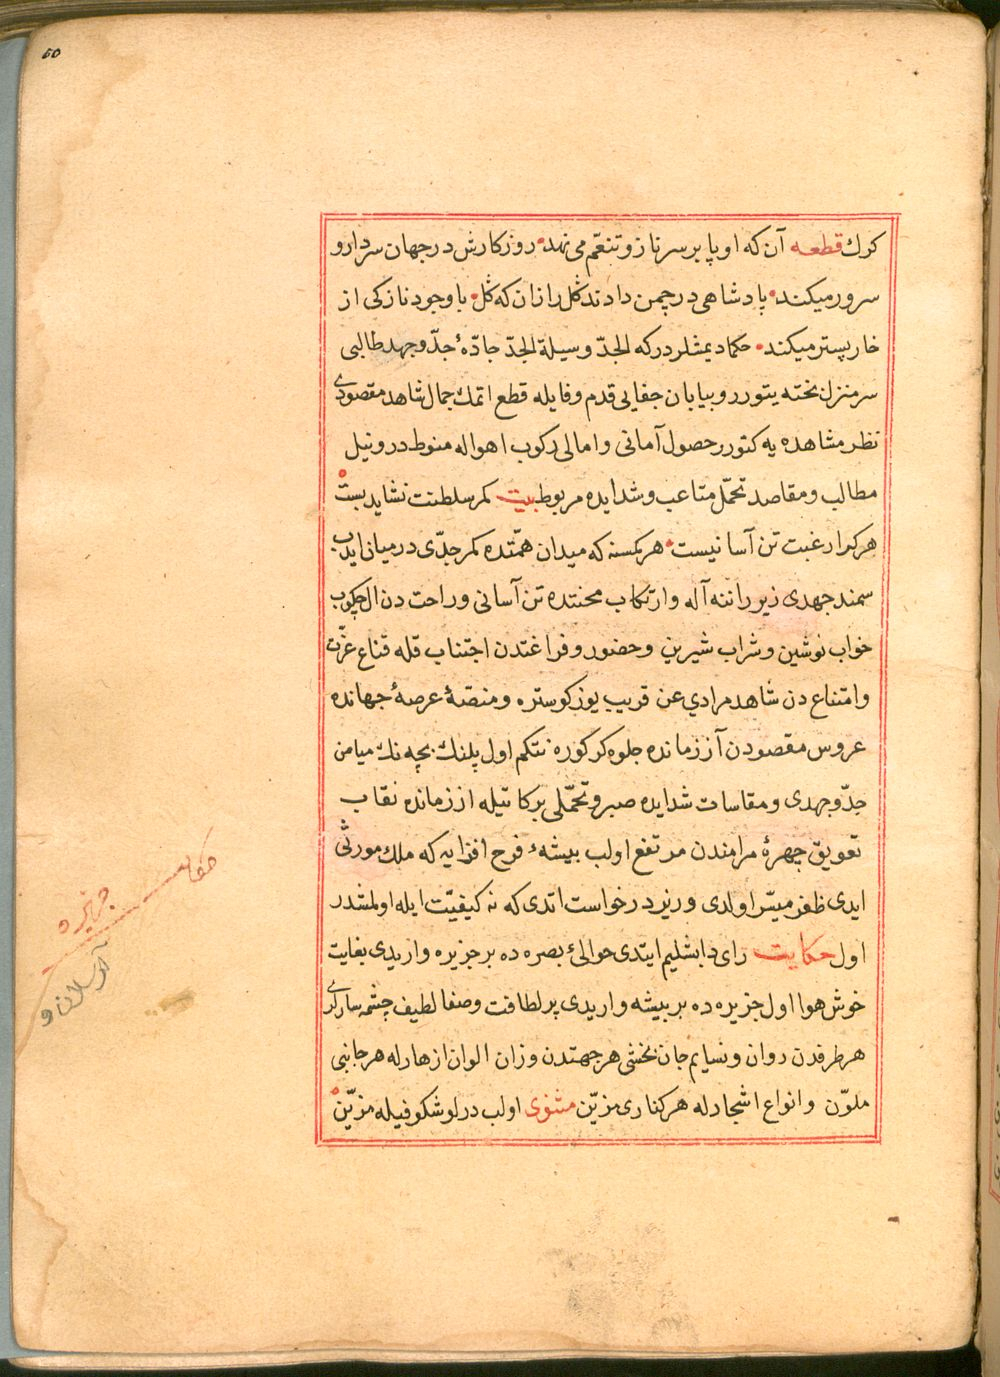 ٥٥
كرك قطعه آن كه او پا بر سر ناز و تنعّم می نهد روزكارش در جهان سردار و
سرور میكند پادشاهی در چمن دادند گل را زان كه گل با وجود نازكی از
خار بستر میكند حكما دیمشلردر كه الجدّ وسیلة الجدّ جادّهٔ جدّ و جهد طالبی
سر منزل بخته یتورر و بیابان جفایی قدم وفایله قطع اتمك جمال شاهد مقصودی
نظر مشاهده یه كتورر حصول آمانی و امالی ركوب اهواله منوط در و نیل
مطالب و مقاصد تحمّل متاعب و شدایده مربوط بیت كمر سلطنت نشاید بست
هركرا رغبت تن آسانیست هر كمسنه كه میدان همّتده كمر جدّی در میان ایدب
سمند جهدی زیر راننه آله و ارتكاب محنتده تن آسانی و راحت دن ال چكوب
خواب نوشین و شراب شیرین و حضور و فراغتدن اجتناب قله قناع عزّت
و امتناع دن شاهد مرادی عن قریب یوز كوستره و منصّهٔ عرصهٔ جهانده
عروس مقصودن آز زمانده جلوه كر كوره نتكم اول پلنك بچه نك میامن
جدّ و جهدی و مقاسات شدایده صبر و تحمّلی بركاتیله از زمانده نقاب
تعویق چهرهٔ مرامندن مرتفع اولب بیشهٔ فرح افزایه كه ملك مورثی
ایدی ظفر میسّر اولدی وزیر درخواست اتدی كه نه كیفیّت ایله اولمشدر
اول حكایت رای دابشلیم ایتدی حوالیٔ بصره ده بر جزیره واریدی بغایت
خوش هوا اول جزیره ده بر بیشه واریدی پر لطافت و صفا لطیف چشمه سارلری
هر طرفدن روان و نسایم جان بخشی هر جهتدن وزان الوان ازهارله هر جانبی
ملوّن و انواع اشجارله هر كناری مزیّن مثنوی اولب در لو شكوفیله مزیّن
حكایت
جزیره
آرسلان و